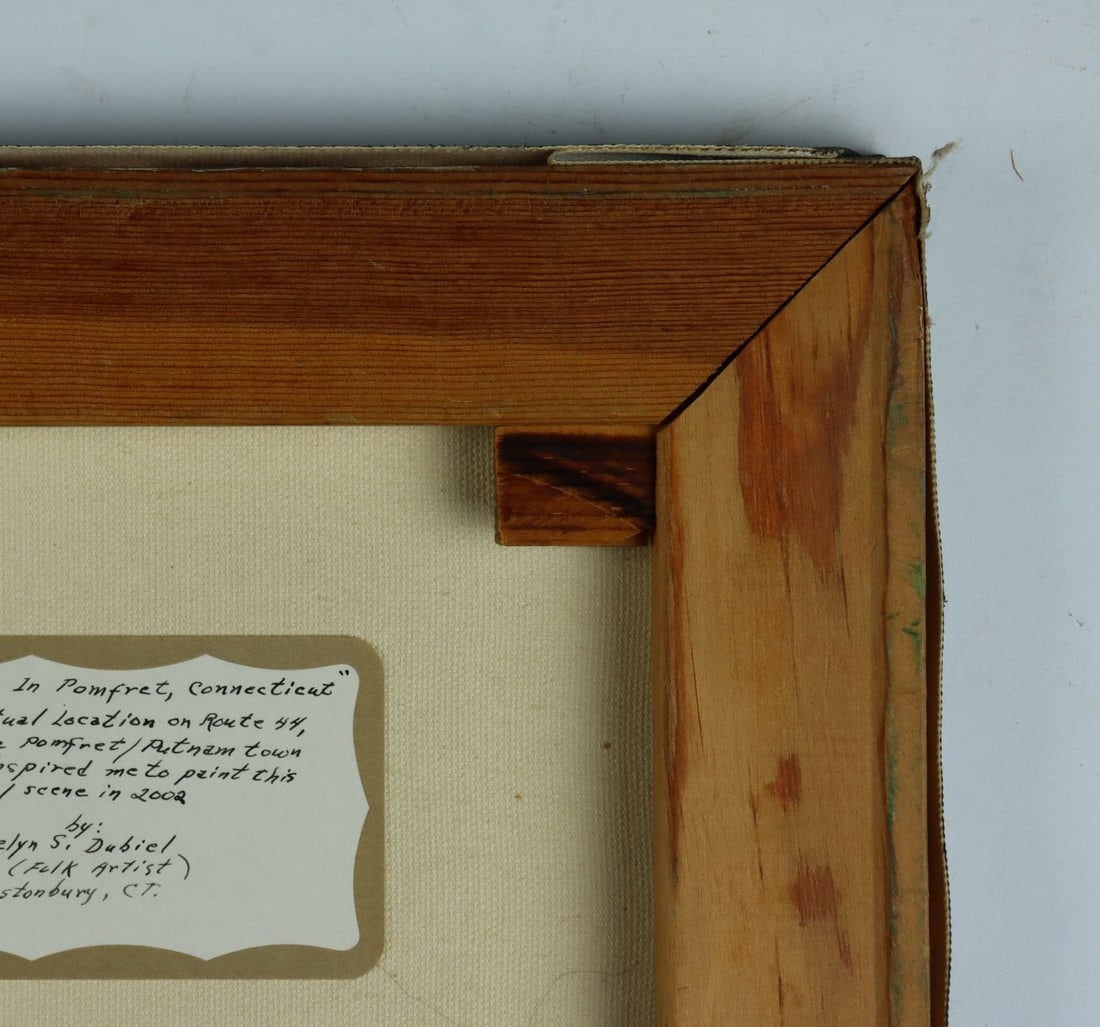 In Pomfret, Connecticut"
tual Location on Route 44,
e Pomfret/Putnam town
nspired me to paint this
l scene in 2002
by:
elyn S. Dubiel
(Folk Artist)
stonbury, CT.